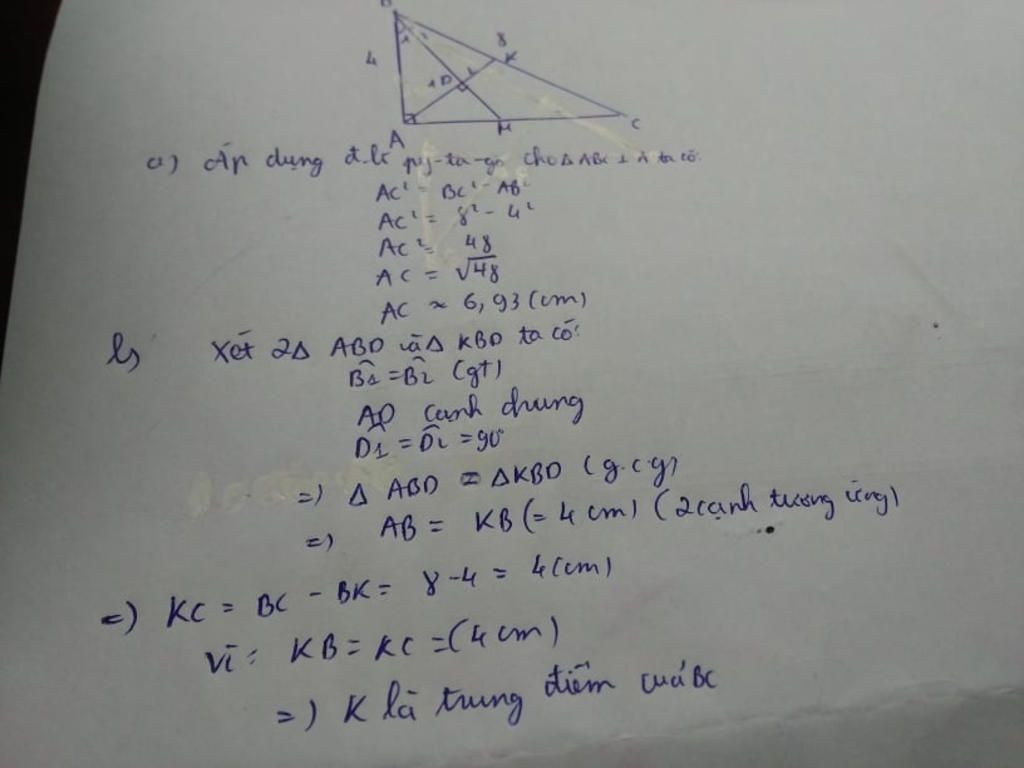 B
4
1
2
8
K
1 D 2
A
M
C
a) Áp dụng đ.lí py-ta-go cho Δ ABC ⊥ A ta có:
AC² = BC² - AB²
AC² = 8² - 4²
AC² = 48
AC = √48
AC ≈ 6,93 (cm)
b) Xét 2Δ ABD và Δ KBD ta có:
B̂1 = B̂2 (gt)
AD cạnh chung
D̂1 = D̂2 = 90°
=) Δ ABD = Δ KBD (g.c.g)
=) AB = KB (= 4 cm) (2 cạnh tương ứng)
=) KC = BC - BK = 8 - 4 = 4 (cm)
Vì: KB = KC = (4 cm)
=) K là trung điểm của BC